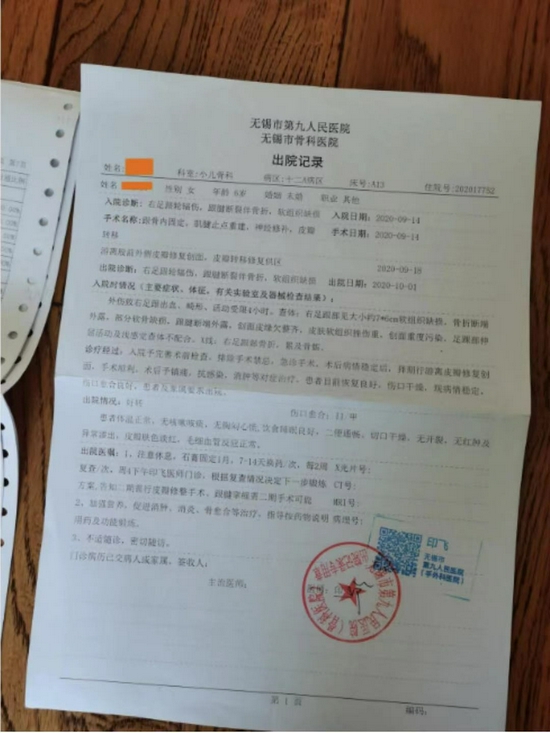 无锡市第九人民医院
无锡市骨科医院
出院记录
姓名: 科室:小儿骨科 病区:十二A病区 床号:A13 住院号:202017752
姓名 性别 女 年龄 6岁 婚姻 未婚 职业 其他
入院诊断: 右足跟轮辐伤,跟腱断裂伴骨折,软组织缺损 入院日期: 2020-09-14
手术名称: 跟骨内固定,肌腱止点重建,神经修补,皮瓣 手术日期: 2020-09-14
转移
游离股前外侧皮瓣修复创面,皮瓣转移修复供区 2020-09-18
出院诊断: 右足跟轮辐伤,跟腱断裂伴骨折,软组织缺损 出院日期: 2020-10-01
入院时情况(主要症状、体征,有关实验室及器械检查结果):
外伤致右足跟出血、畸形、活动受限4小时。查体:右足跟部见大小约7*6cm软组织缺损,骨折断端
外露,部分软骨缺损,跟腱断端外露,创面皮缘欠整齐,皮肤软组织挫伤重,创面重度污染,足踝部肿
显活动及浅感觉查体不配合。X线:右足跟骨折,累及骨骺。
诊疗经过: 入院予完善术前检查,排除手术禁忌,急诊手术,术后病情稳定后,择期行游离皮瓣修复创
面,手术顺利,术后予镇痛、抗感染、消肿等对症治疗,患者目前恢复良好,伤口干燥,现病情稳定,
伤口愈合良好,患者及家属要求出院。
出院情况: 好转 伤口愈合: II.甲
患者体温正常,无咳嗽咳痰,无胸闷心慌,饮食睡眠良好,二便通畅,切口干燥,无开裂,无红肿及
异常渗出,皮瓣肤色淡红,毛细血管反应正常。
出院医嘱: 1、注意休息,石膏固定1月,7-14天换药/次,每2周 X光片号:
复查/次,周4下午印飞医师门诊,根据复查情况决定下一步锻炼 CT号:
方案,告知二期需行皮瓣修整手术,跟腱挛缩需二期手术可能 MRI号:
2、加强营养,促进消肿、消炎、骨愈合等治疗,指导按药物说明 病理号:
用药及功能锻炼。
3、不适随诊,密切随访。
门诊病历已交病人或家属,签收人:
主治医师:
印飞
无锡市
第九人民医院
(手外科医院)
第 1 页
编码: